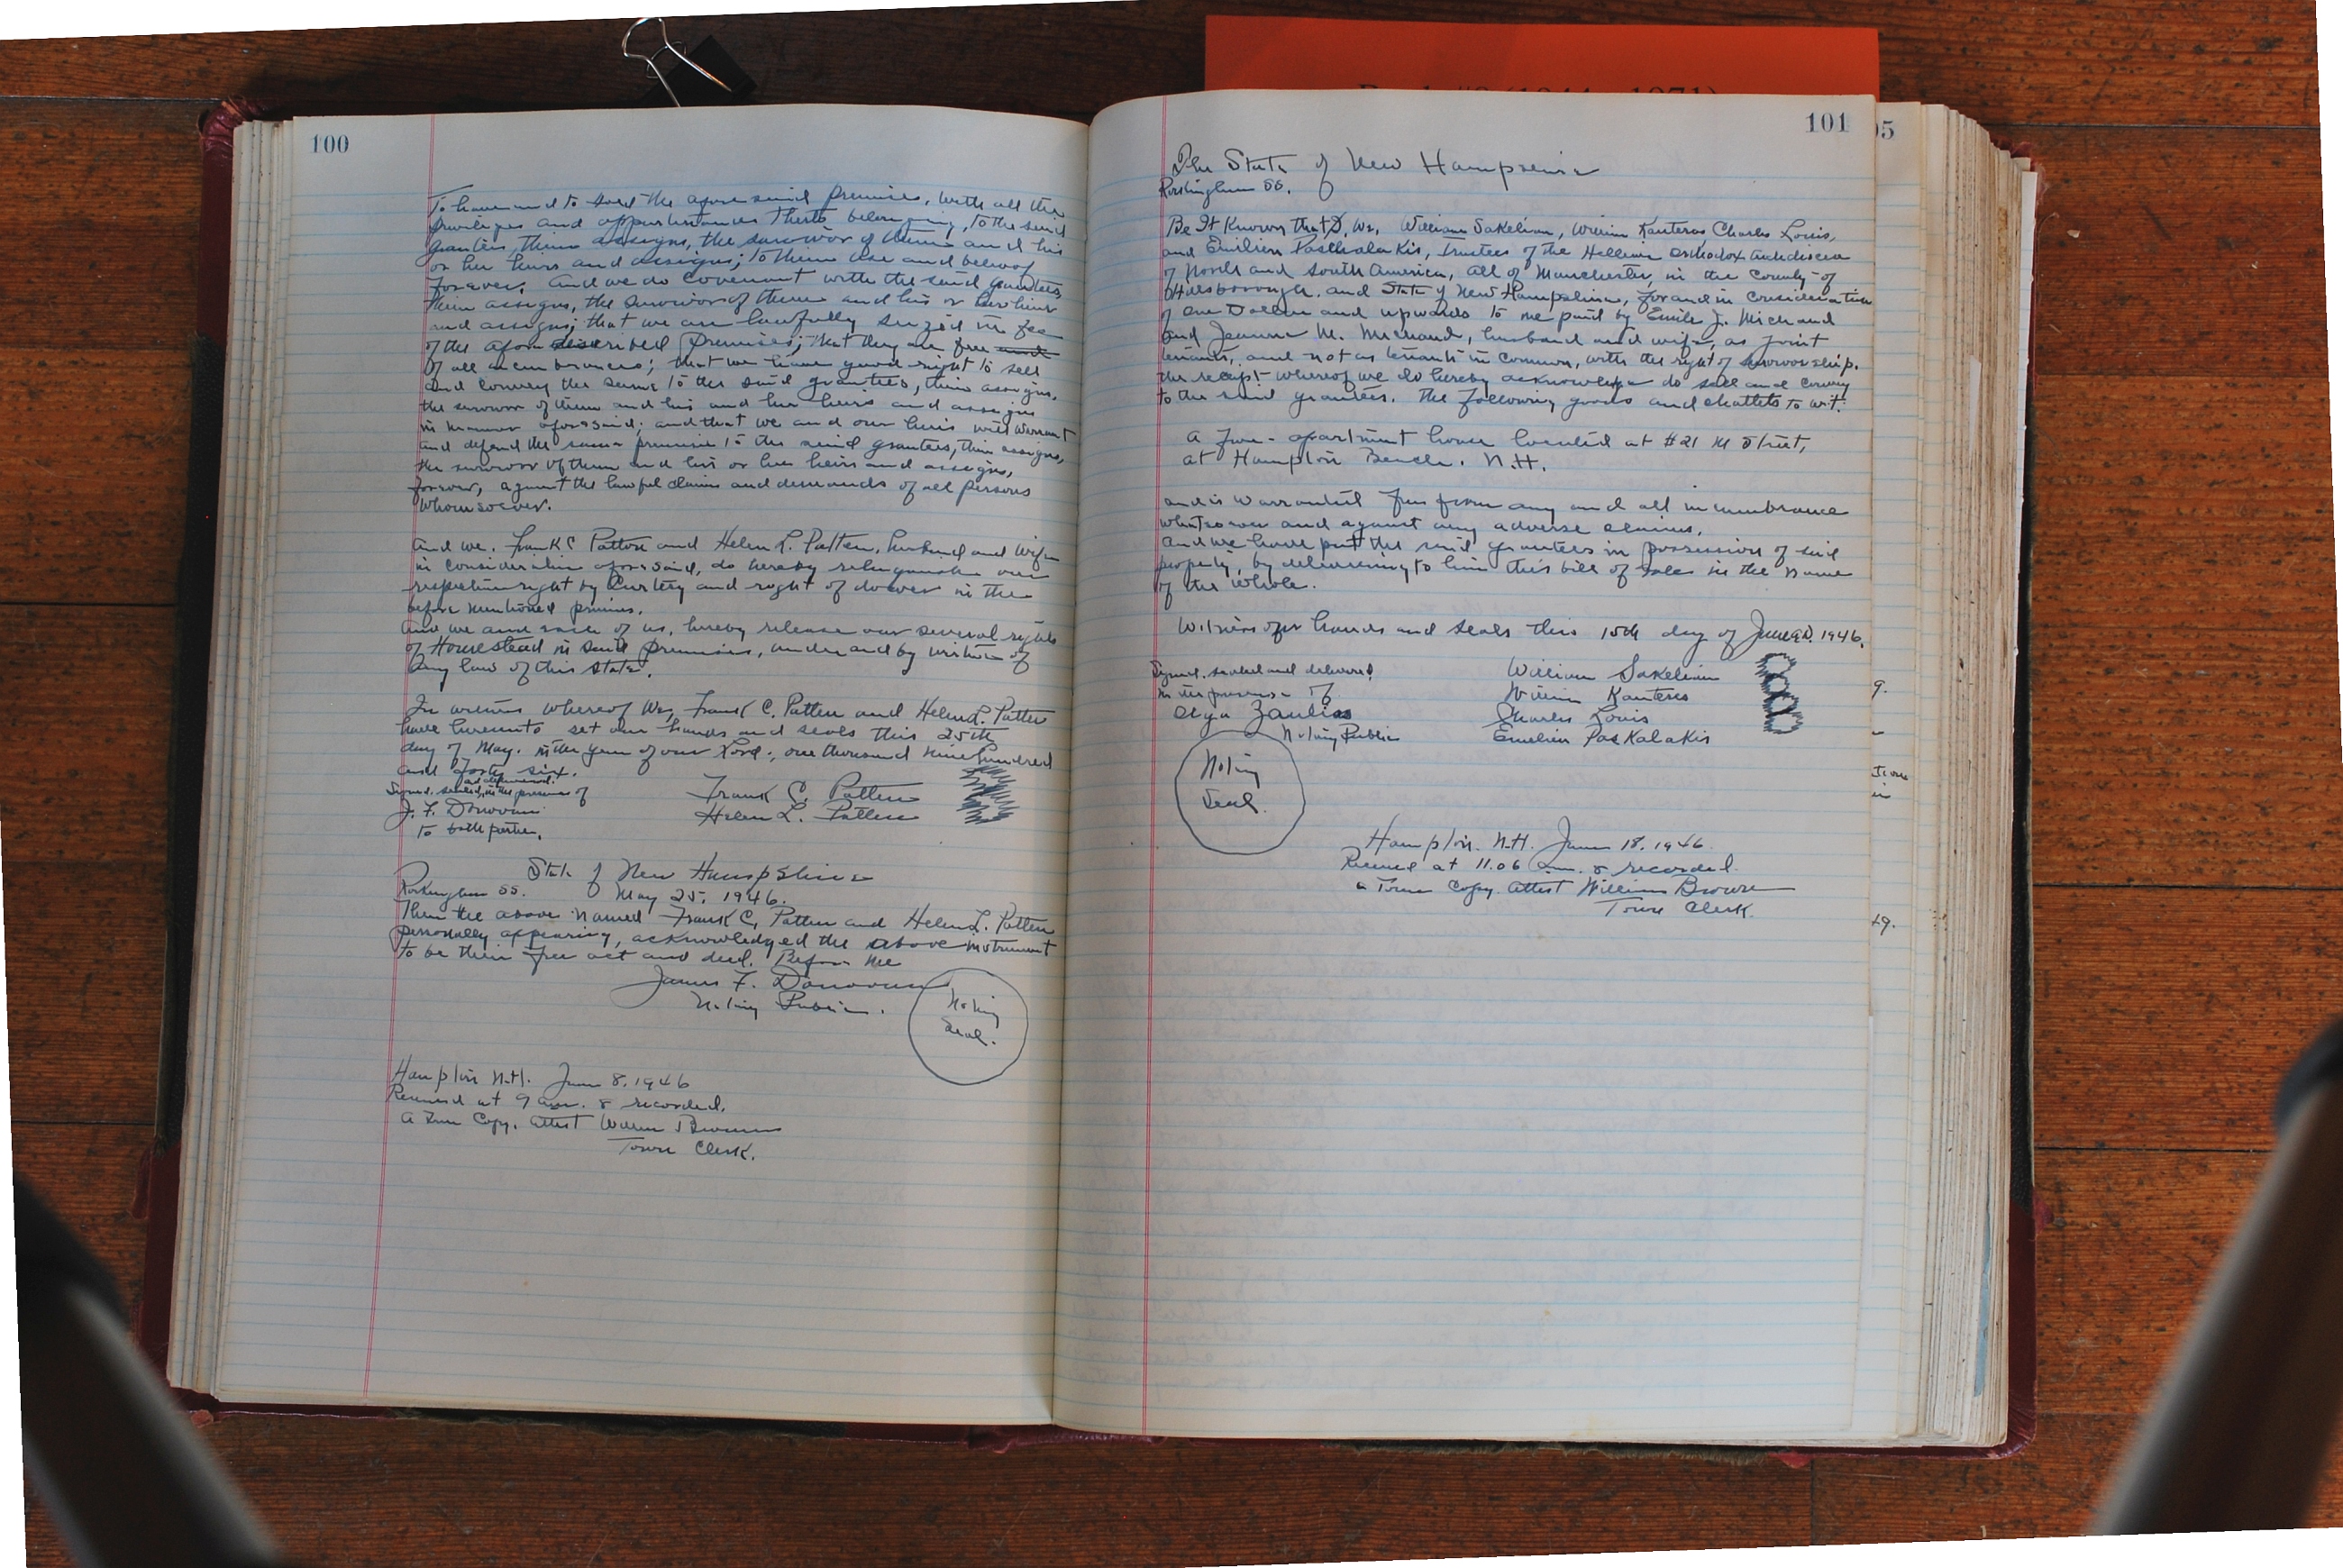 100
To have and to hold the afore said premises, with all the
privileges and appurtenances thereto belonging, to the said
grantees, their assigns, the survivor of them and his
or her heirs and assigns; to their use and behoof
forever. And we do covenant with the said grantees,
their assigns, the survivor of them and his or her heirs
and assigns; that we are lawfully seized in fee
of the afore described premises; that they are free
of all encumbrances; that we have good right to sell
and convey the same to the said grantees, their assigns,
the survivor of them and his and her heirs and assigns
in manner aforesaid; and that we and our heirs will warrant
and defend the same premise to the said grantees, their assigns,
the survivor of them and his or her heirs and assigns,
forever, against the lawful claims and demands of all persons
whomsoever.
And we, Frank C Patten and Helen L. Patten, husband and wife
in consideration aforesaid, do hereby relinquish our
respective right by Curtesy and right of dower in the
before mentioned premises.
And we and each of us, hereby release our several rights
of Homestead in said premises, under and by virtue of
any law of this state.
In witness whereof We, Frank C. Patten and Helen L. Patten
have hereunto set our hands and seals this 25th
day of May. in the year of our Lord, one thousand nine hundred
and forty six.
Signed, sealed, and delivered in the presence of
J. F. Donovan
to both parties.
Frank C. Patten
Helen L. Patten
State of New Hampshire
Rockingham SS. May 25, 1946.
Then the above named Frank C. Patten and Helen L. Patten
personally appearing, acknowledged the above instrument
to be their free act and deed. Before Me
James F. Donovan
Notary Public.
Notary
Seal.
Hampton N.H. June 8. 1946
Received at 9 am. & recorded.
A True Copy. Attest William Brown
Town Clerk.
101
The State of New Hampshire
Rockingham SS.
Be It Known that We, William Sakelian, William Kanteres Charles Louis,
and Emilien Paskalakis, trustees of the Hellenic Orthodox Archdiocese
of North and South America, all of Manchester, in the County of
Hillsborough, and State of New Hampshire, for and in consideration
of One Dollar and upwards to me paid by Emile J. Michaud
and Jeanne M. Michaud, husband and wife, as joint
tenants, and not as tenants in common, with the right of survivorship.
the receipt whereof we do hereby acknowledge do sell and convey
to the said grantees. the following goods and chattels to wit:
A Two-apartment house located at #21 M Street,
at Hampton Beach. N.H.
and is warranted free from any and all incumbrance
whatsoever and against any adverse claims.
and we have put the said grantees in possession of said
property, by delivering to him this bill of sale in the name
of the whole.
Witness our hands and seals this 15th day of June A.D. 1946.
Signed, sealed and delivered
in the presence of
Olga Zaulis
Notary Public
William Sakelian
William Kanteres
Charles Louis
Emilien Paskalakis
Notary
Seal.
Hampton. N.H. June 18, 1946
Received at 11.06 a.m. & recorded.
a True Copy. Attest William Brown
Town Clerk.